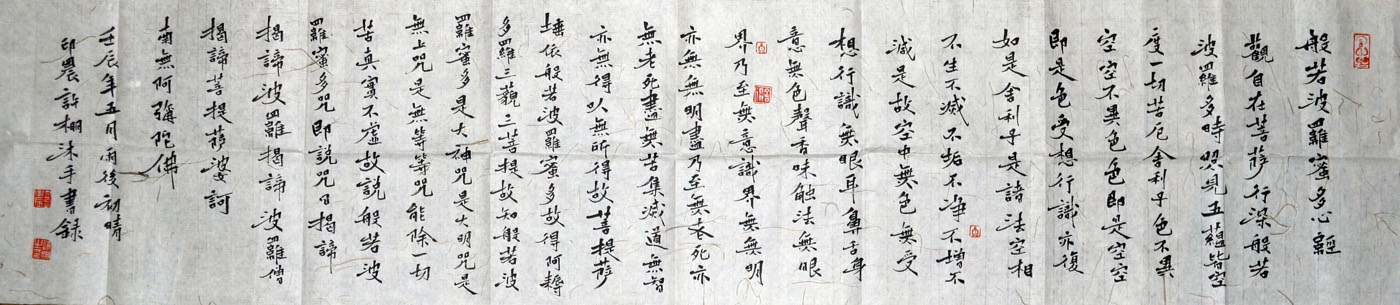 般若波羅蜜多心經
觀自在菩薩行深般若
波羅多時照見五蘊皆空
度一切苦厄舍利子色不異
空空不異色色即是空空
即是色受想行識亦復
如是舍利子是諸法空相
不生不滅不垢不淨不增不
減是故空中無色無受
想行識無眼耳鼻舌身
意無色聲香味触法無眼
界乃至無意識界無無明
亦無無明盡乃至無老死亦
無老死盡無苦集滅道無智
亦無得以無所得故菩提薩
埵依般若波羅蜜多故得阿耨
多羅三藐三菩提故知般若波
羅蜜多是大神咒是大明咒是
無上咒是無等等咒能除一切
苦真實不虛故説般若波
羅蜜多咒即説咒曰揭諦
揭諦波羅揭諦波羅僧
揭諦菩提薩婆訶
南無阿彌陀佛
壬辰年五月雨後初晴
印農許沐手書錄